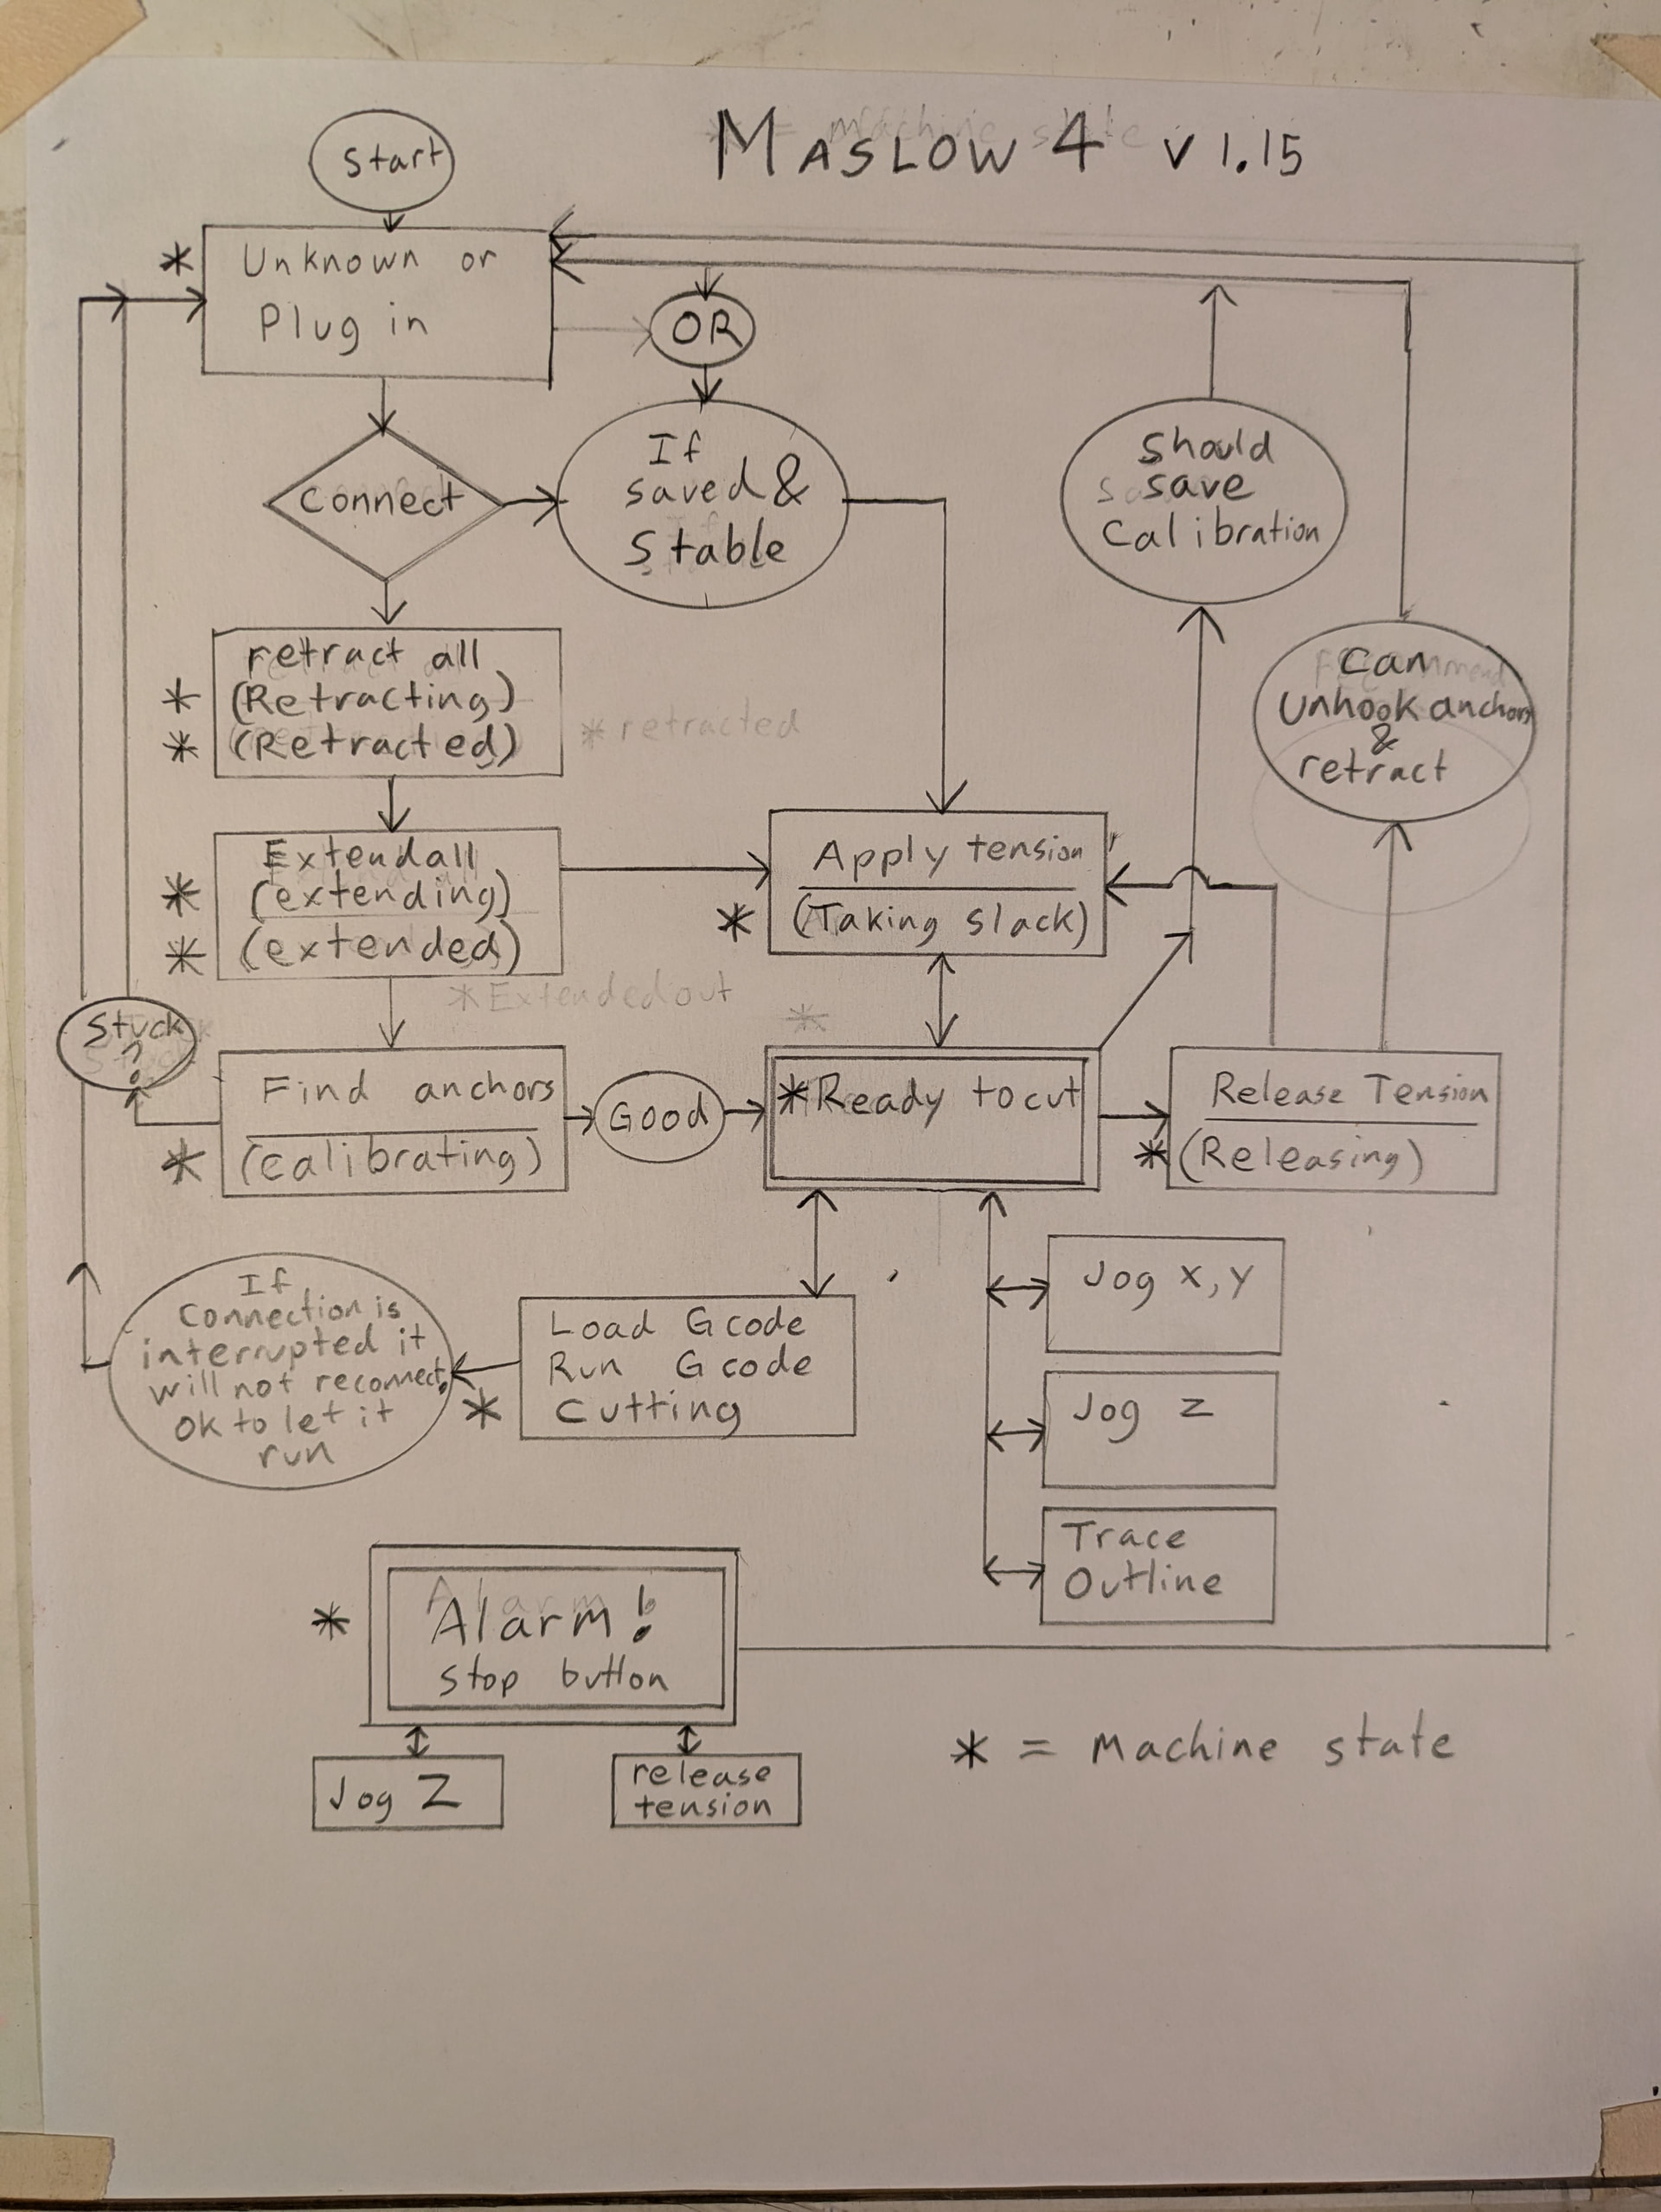 Start
MASLOW 4 v 1.15
* Unknown or
Plug in
OR
Connect
If
saved &
Stable
Should
save
Calibration
retract all
* (Retracting)
* (Retracted)
* retracted
Can
Unhook anchors
&
retract
Extend all
* (extending)
* (extended)
* Extended out
Apply tension
* (Taking slack)
Stuck
?
Find anchors
* (calibrating)
Good
* Ready to cut
Release Tension
* (Releasing)
If
Connection is
interrupted it
will not reconnect.
OK to let it
run
Load Gcode
Run Gcode
* Cutting
Jog x,y
Jog z
Trace
Outline
* Alarm!
Stop button
Jog Z
release
tension
* = Machine state